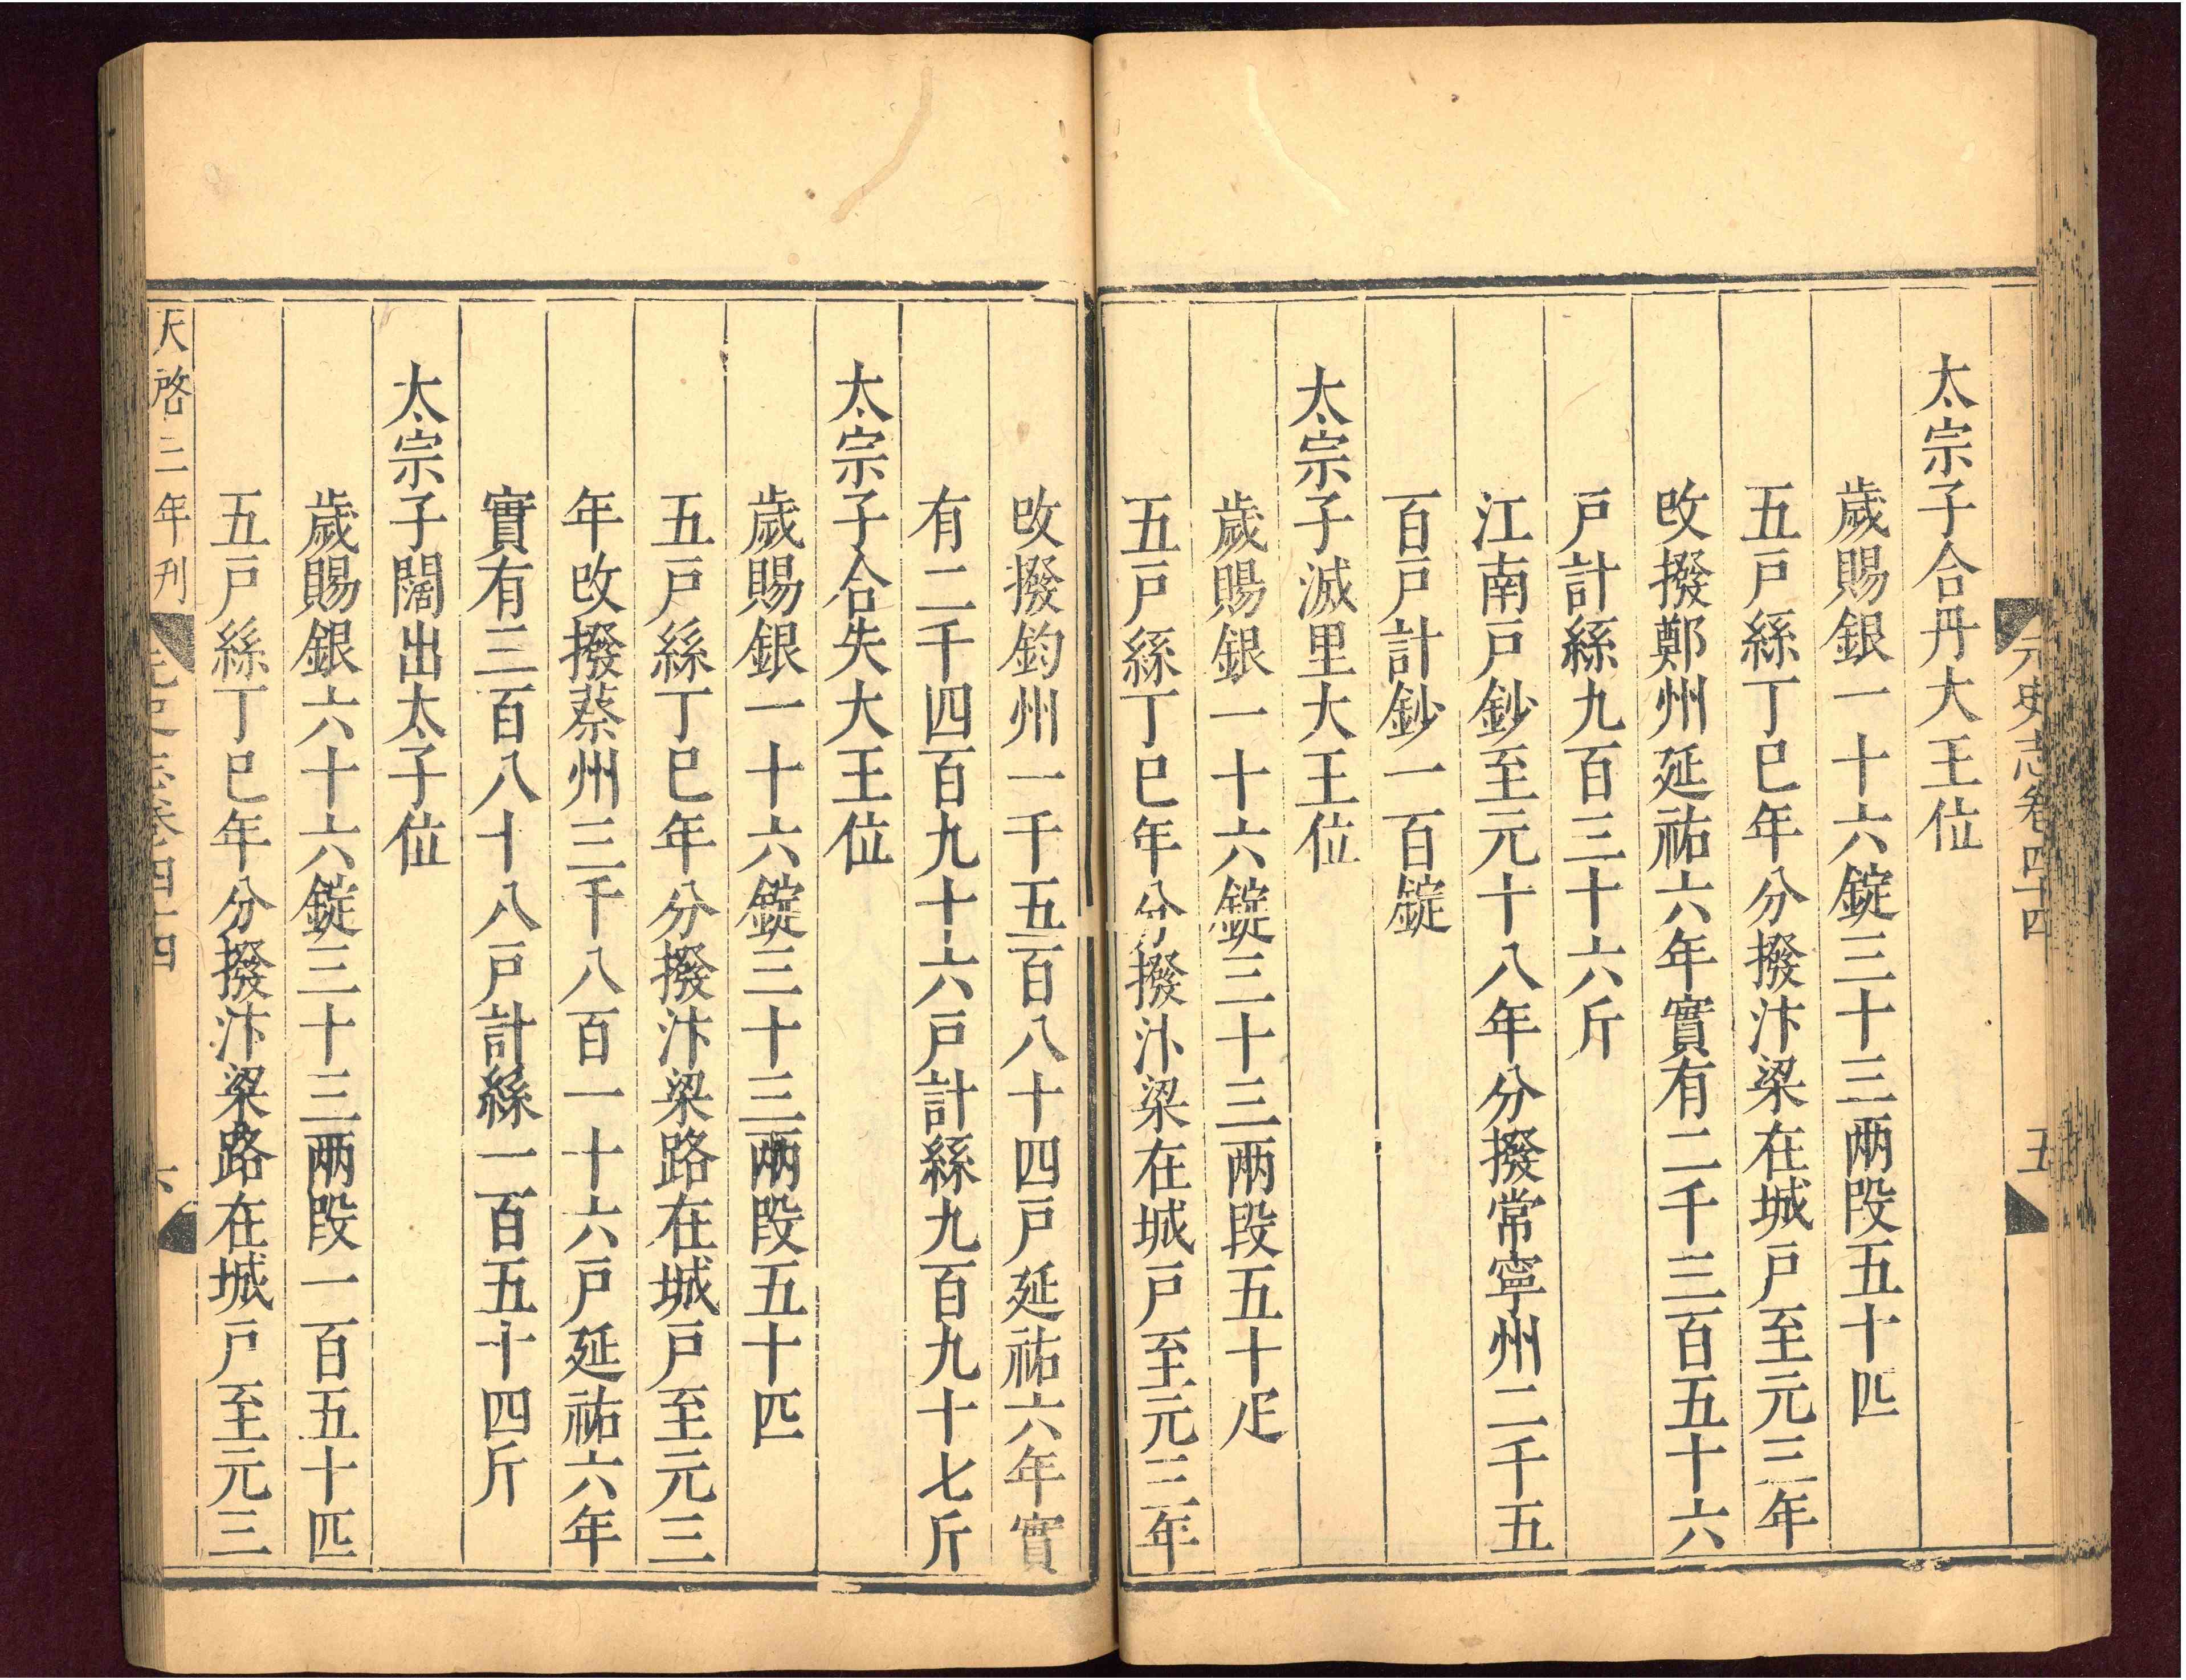 元史志卷四十四 五
太宗子合丹大王位
歲賜銀一十六錠三十三兩段五十匹
五戸絲丁巳年分撥汴梁在城戸至元三年
改撥鄭州延祐六年實有二千三百五十六
戸計絲九百三十六斤
江南戸鈔至元十八年分撥常寧州二千五
百戸計鈔一百錠
太宗子滅里大王位
歲賜銀一十六錠三十三兩段五十疋
五戸絲丁巳年分撥汴梁在城戸至元三年
改撥鈞州一千五百八十四戸延祐六年實
有二千四百九十六戸計絲九百九十七斤
太宗子合失大王位
歲賜銀一十六錠三十三兩段五十匹
五戸絲丁巳年分撥汴梁路在城戸至元三
年改撥蔡州三千八百一十六戸延祐六年
實有三百八十八戸計絲一百五十四斤
太宗子闊出太子位
歲賜銀六十六錠三十三兩段一百五十匹
五戸絲丁巳年分撥汴梁路在城戸至元三
天啓三年刊 元史志卷四十四 六